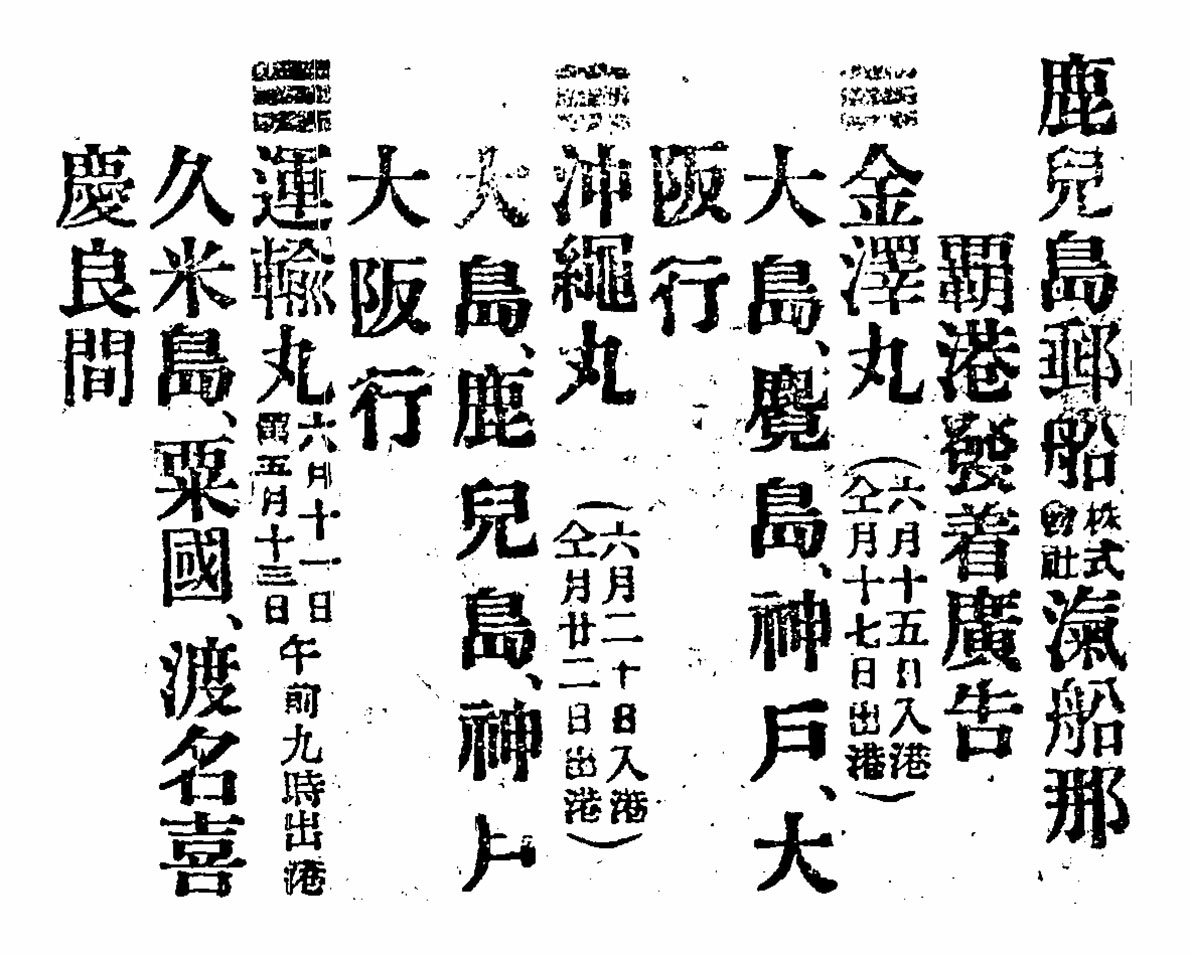 鹿兒島郵船株式會社滊船那
覇港發着廣告
金澤丸(六月十五日入港
仝月十七日出港)
大島、鹿兒島、神戶、大
阪行
沖繩丸(六月二十日入港
仝月廿二日出港)
大島、鹿兒島、神戶
大阪行
運輸丸六月十一日
舊五月十三日午前九時出港
久米島、粟國、渡名喜
慶良間